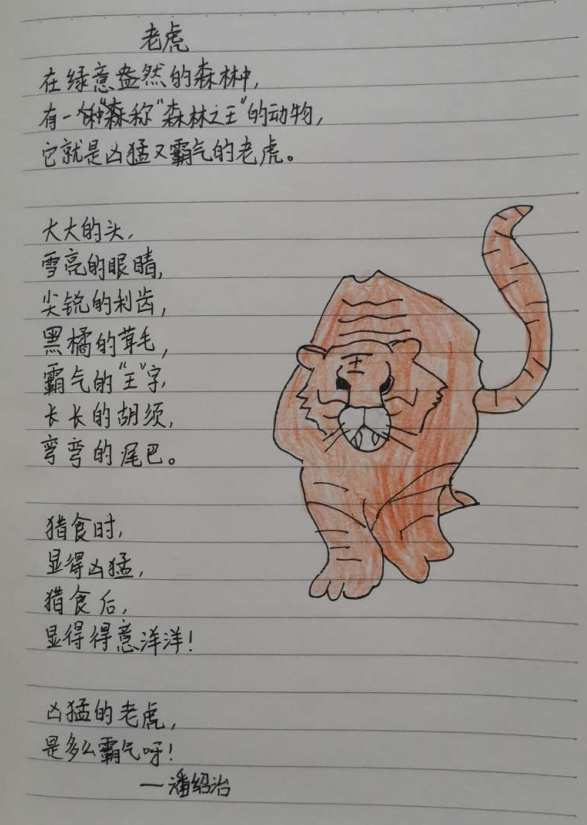 老虎
在绿意盎然的森林中，
有一种森称"森林之王"的动物，
它就是凶猛又霸气的老虎。
大大的头，
雪亮的眼睛，
尖锐的利齿，
黑橘的茸毛，
霸气的"王"字，
长长的胡须，
弯弯的尾巴。
猎食时，
显得凶猛，
猎食后，
显得得意洋洋！
凶猛的老虎，
是多么霸气呀！
—潘绍治
王